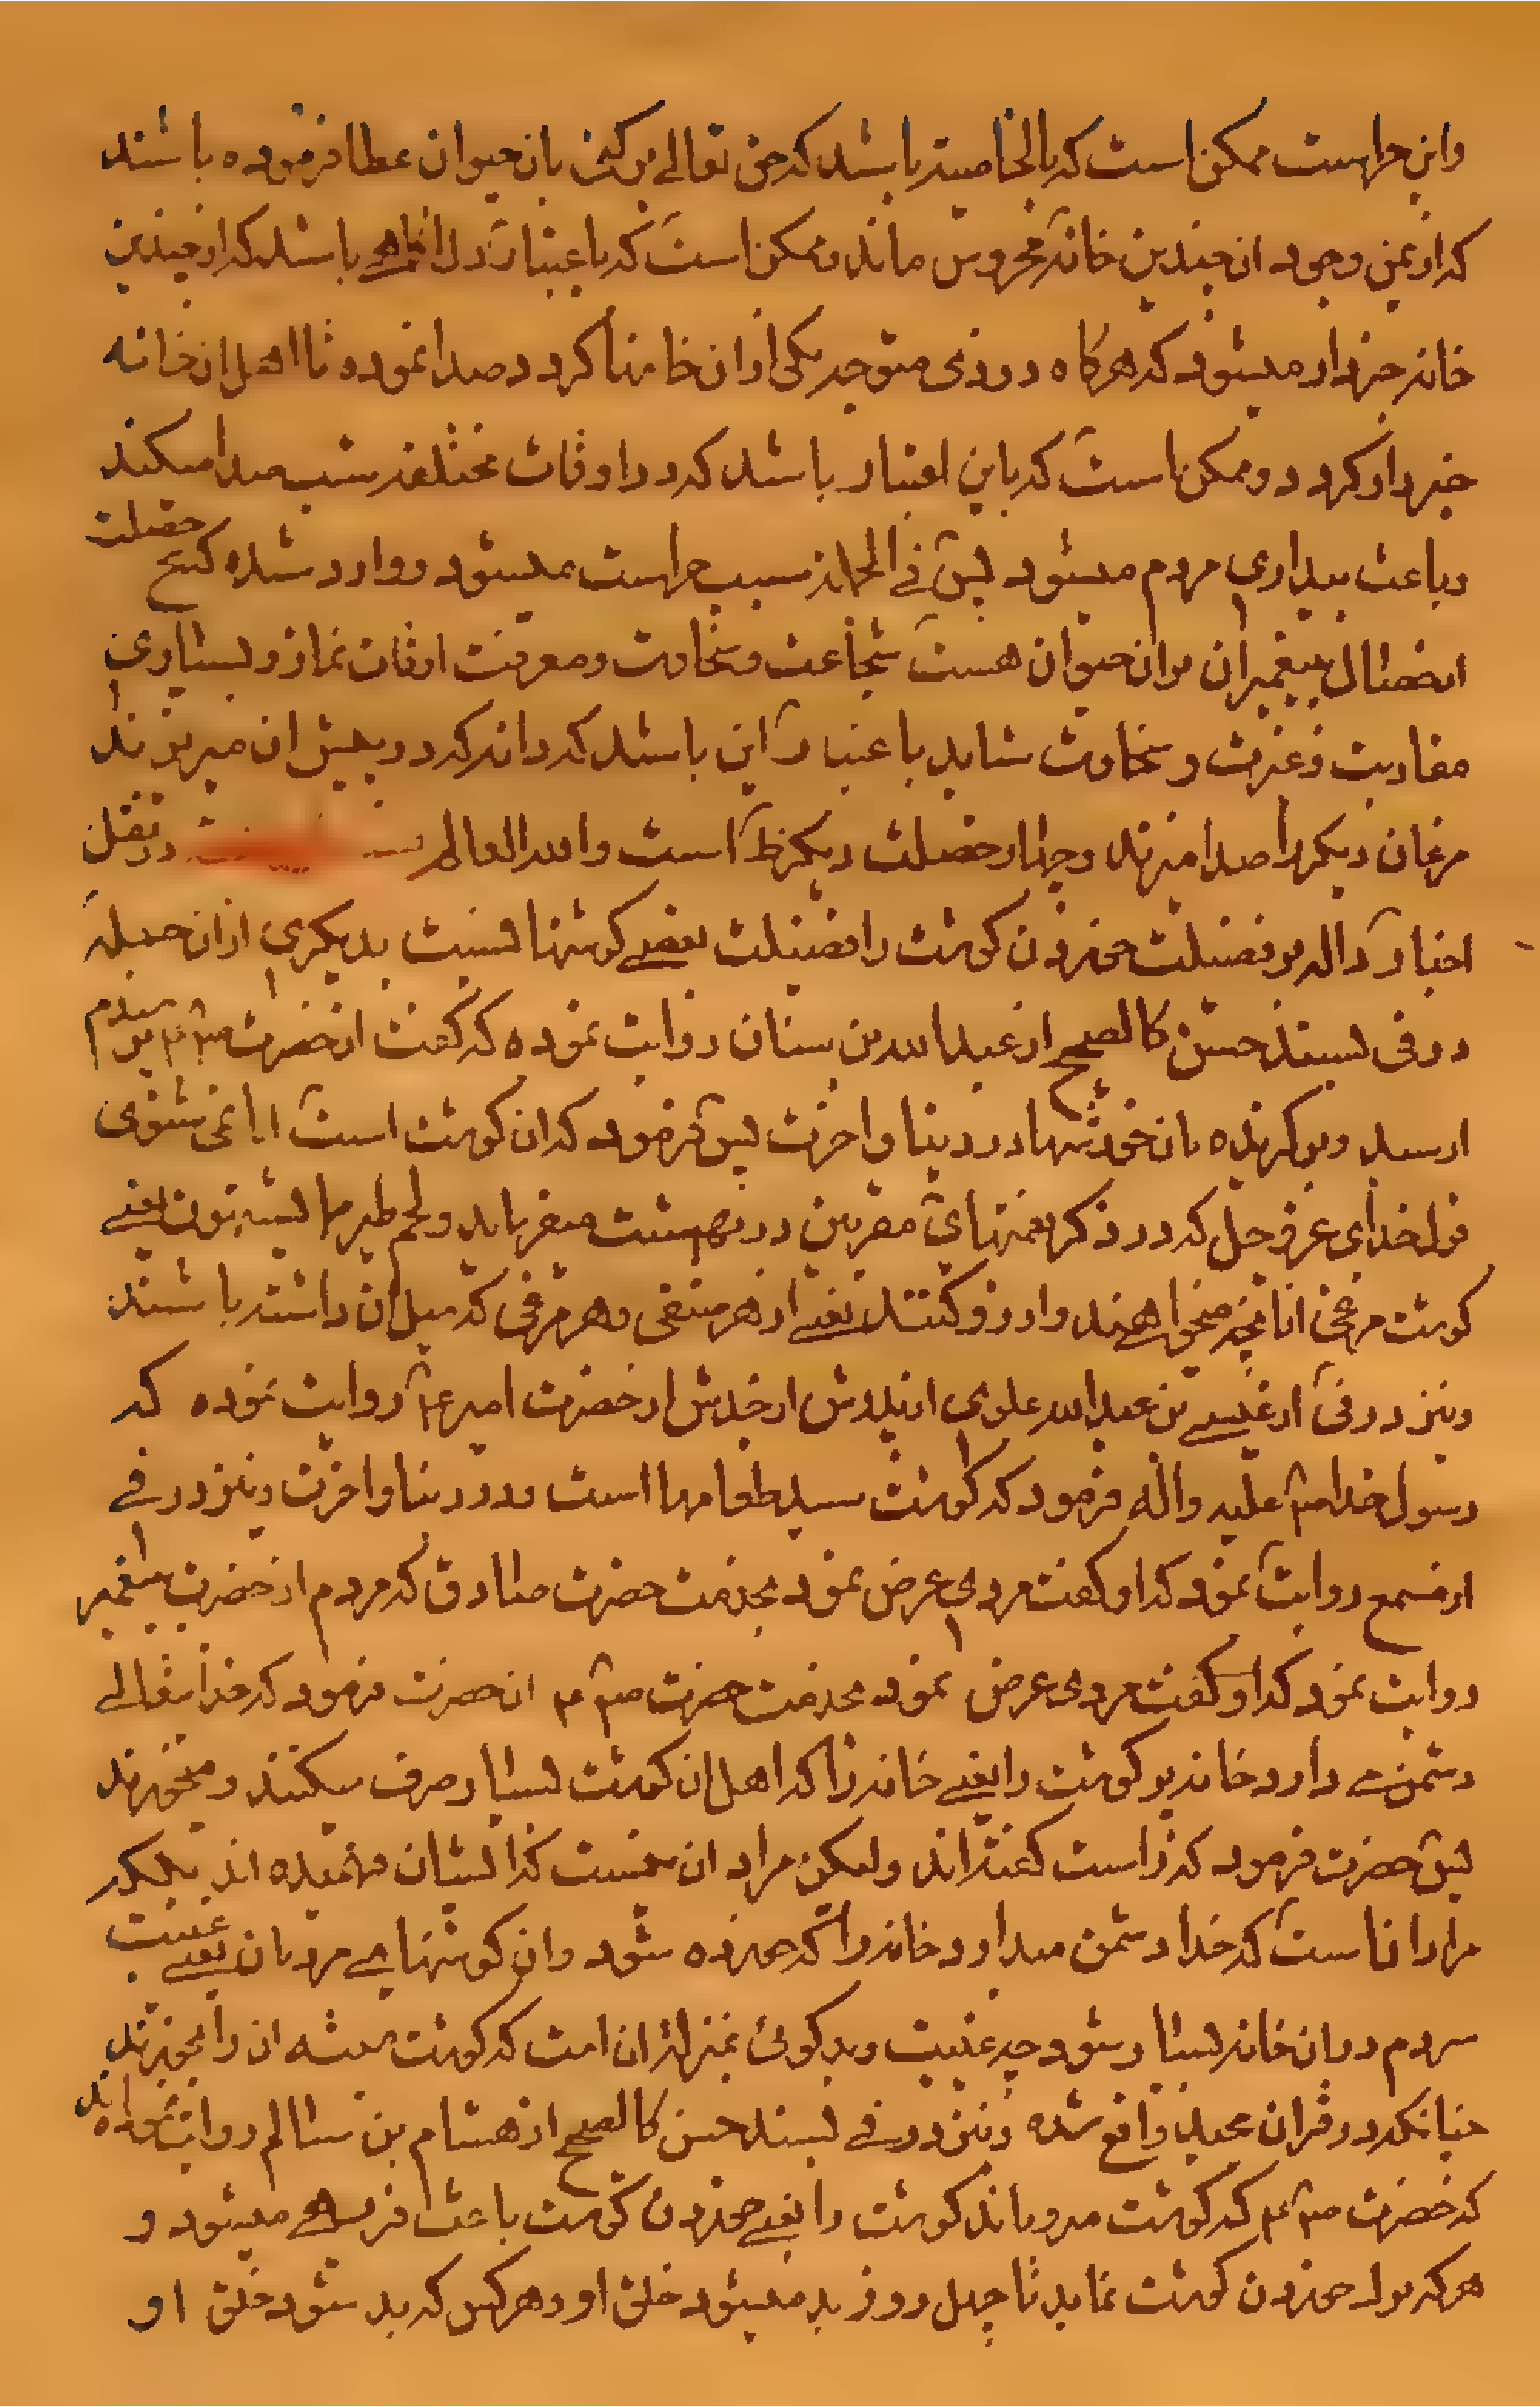 واین حراست ممکن است که بالخاصیة باشد که حق تعالی برکتی بان حیوان عطا فرموده باشند
که از یمن وجود ان چندین خانه محروس ماند و ممکن است که باعتبار باشد که از چندین
خانه خبردار میشود که هرکاه دزدی متوجه یکی از ان خانها کردد صدا نموده تا اهل ان خانه
خبردار کردد و ممکن است که باین اعتبار باشد که در اوقات مختلفه شب صدا میکند
و باعث بیداری مردم میشود پس فی الجمله سبب حراست میشود و وارد شده که پنج خصلت
از خصال پیغمبران در ان حیوان هست شجاعت و سخاوت و معرفت اوقات نماز و بسیاری
مقاربت و غیرت و سخاوت شاید باعتبار این باشد که دانه که در پیش ان میریزند
مرغان دیکر را صدا میزند و چهار خصلت دیکر ظ است والله العالم در نقل
اخبار داله بر فضیلت خوردن کوشت و افضیلت بعضی کوشتها نسبت بدیکری از ان جمله
در فی بسند حسن کالصحیح از عبدالله بن سنان روایت نموده که کفت از حضرت ص ع پرسیدم
از سید و بزرکزیده نان خورشها در دنیا و اخرت پس فرمود که ان کوشت است ایا نمی شنوی
قول خدای عز و جل که در ذکر نعمتهای مقربین در بهشت میفرماید ولحم طیر مما یشتهون یعنی
کوشت مرغی از انچه میخواهند و ارزو کنند یعنی از هر صنفی و هر مرغی که میل ان داشته باشند
و نیز در فی از عیسی بن عبدالله علوی از پدرش از جدش از حضرت امیر ع روایت نموده که
رسول خدا ص علیه واله فرمود که کوشت سید طعامها است در دنیا و اخرت و نیز در فی
از مسمع روایت نمود که او کفت مردی عرض نمود بخدمت حضرت صادق که مردم از حضرت پیغمبر
روایت نمود که او کفت مردی عرض نمود بخدمت حضرت ص ع ان حضرت فرمود که خدایتعالی
دشمن می دارد خانه پر کوشت را یعنی خانه را که اهل ان کوشت بسیار صرف میکنند و میخورند
پس حضرت فرمود که راست کفته اند ولیکن مراد ان نیست که ایشان فهمیده اند بلکه
مراد ان است که خدا دشمن میدارد خانه را که خورده شود در ان کوشتهای مردمان یعنی غیبت
مردم در ان خانه بسیار شود چه غیبت و بد کوئی بمنزله ان است که کوشت میته ان را بخورند
چنانکه در قران مجید واقع شده و نیز در فی بسند حسن کالصحیح از هشام بن سالم روایت نموده اند
که حضرت ص ع که کوشت میرویاند کوشت را یعنی خوردن کوشت باعث فربهی میشود و
هرکه ترک خوردن کوشت نماید تا چهل روز بد میشود خلق او و هرکس که بد شود خلق او